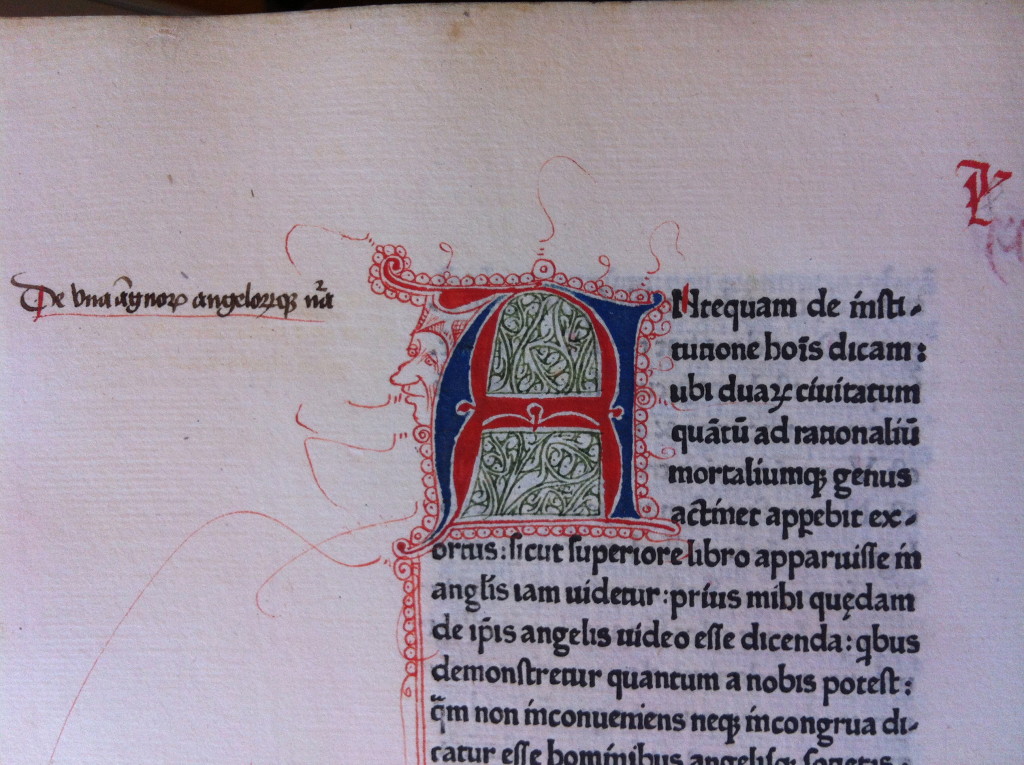 De vna
A
Ntequam de insti⸗
tutione hoīs dicam:
ubi duaꝝ ciuitatum
quātū ad rationaliū
mortaliumqꝫ genus
actinet apꝑebit ex⸗
ortus: sicut superiore libro apparuisse in
anglis iam uidetur: prius mihi quędam
de ip̄is angelis uideo esse dicenda: qbus
demonstretur quantum a nobis potest:
q̄m non inconueniens neqꝫ incongrua di⸗
catur esse hominibus angelisqꝫ societas.